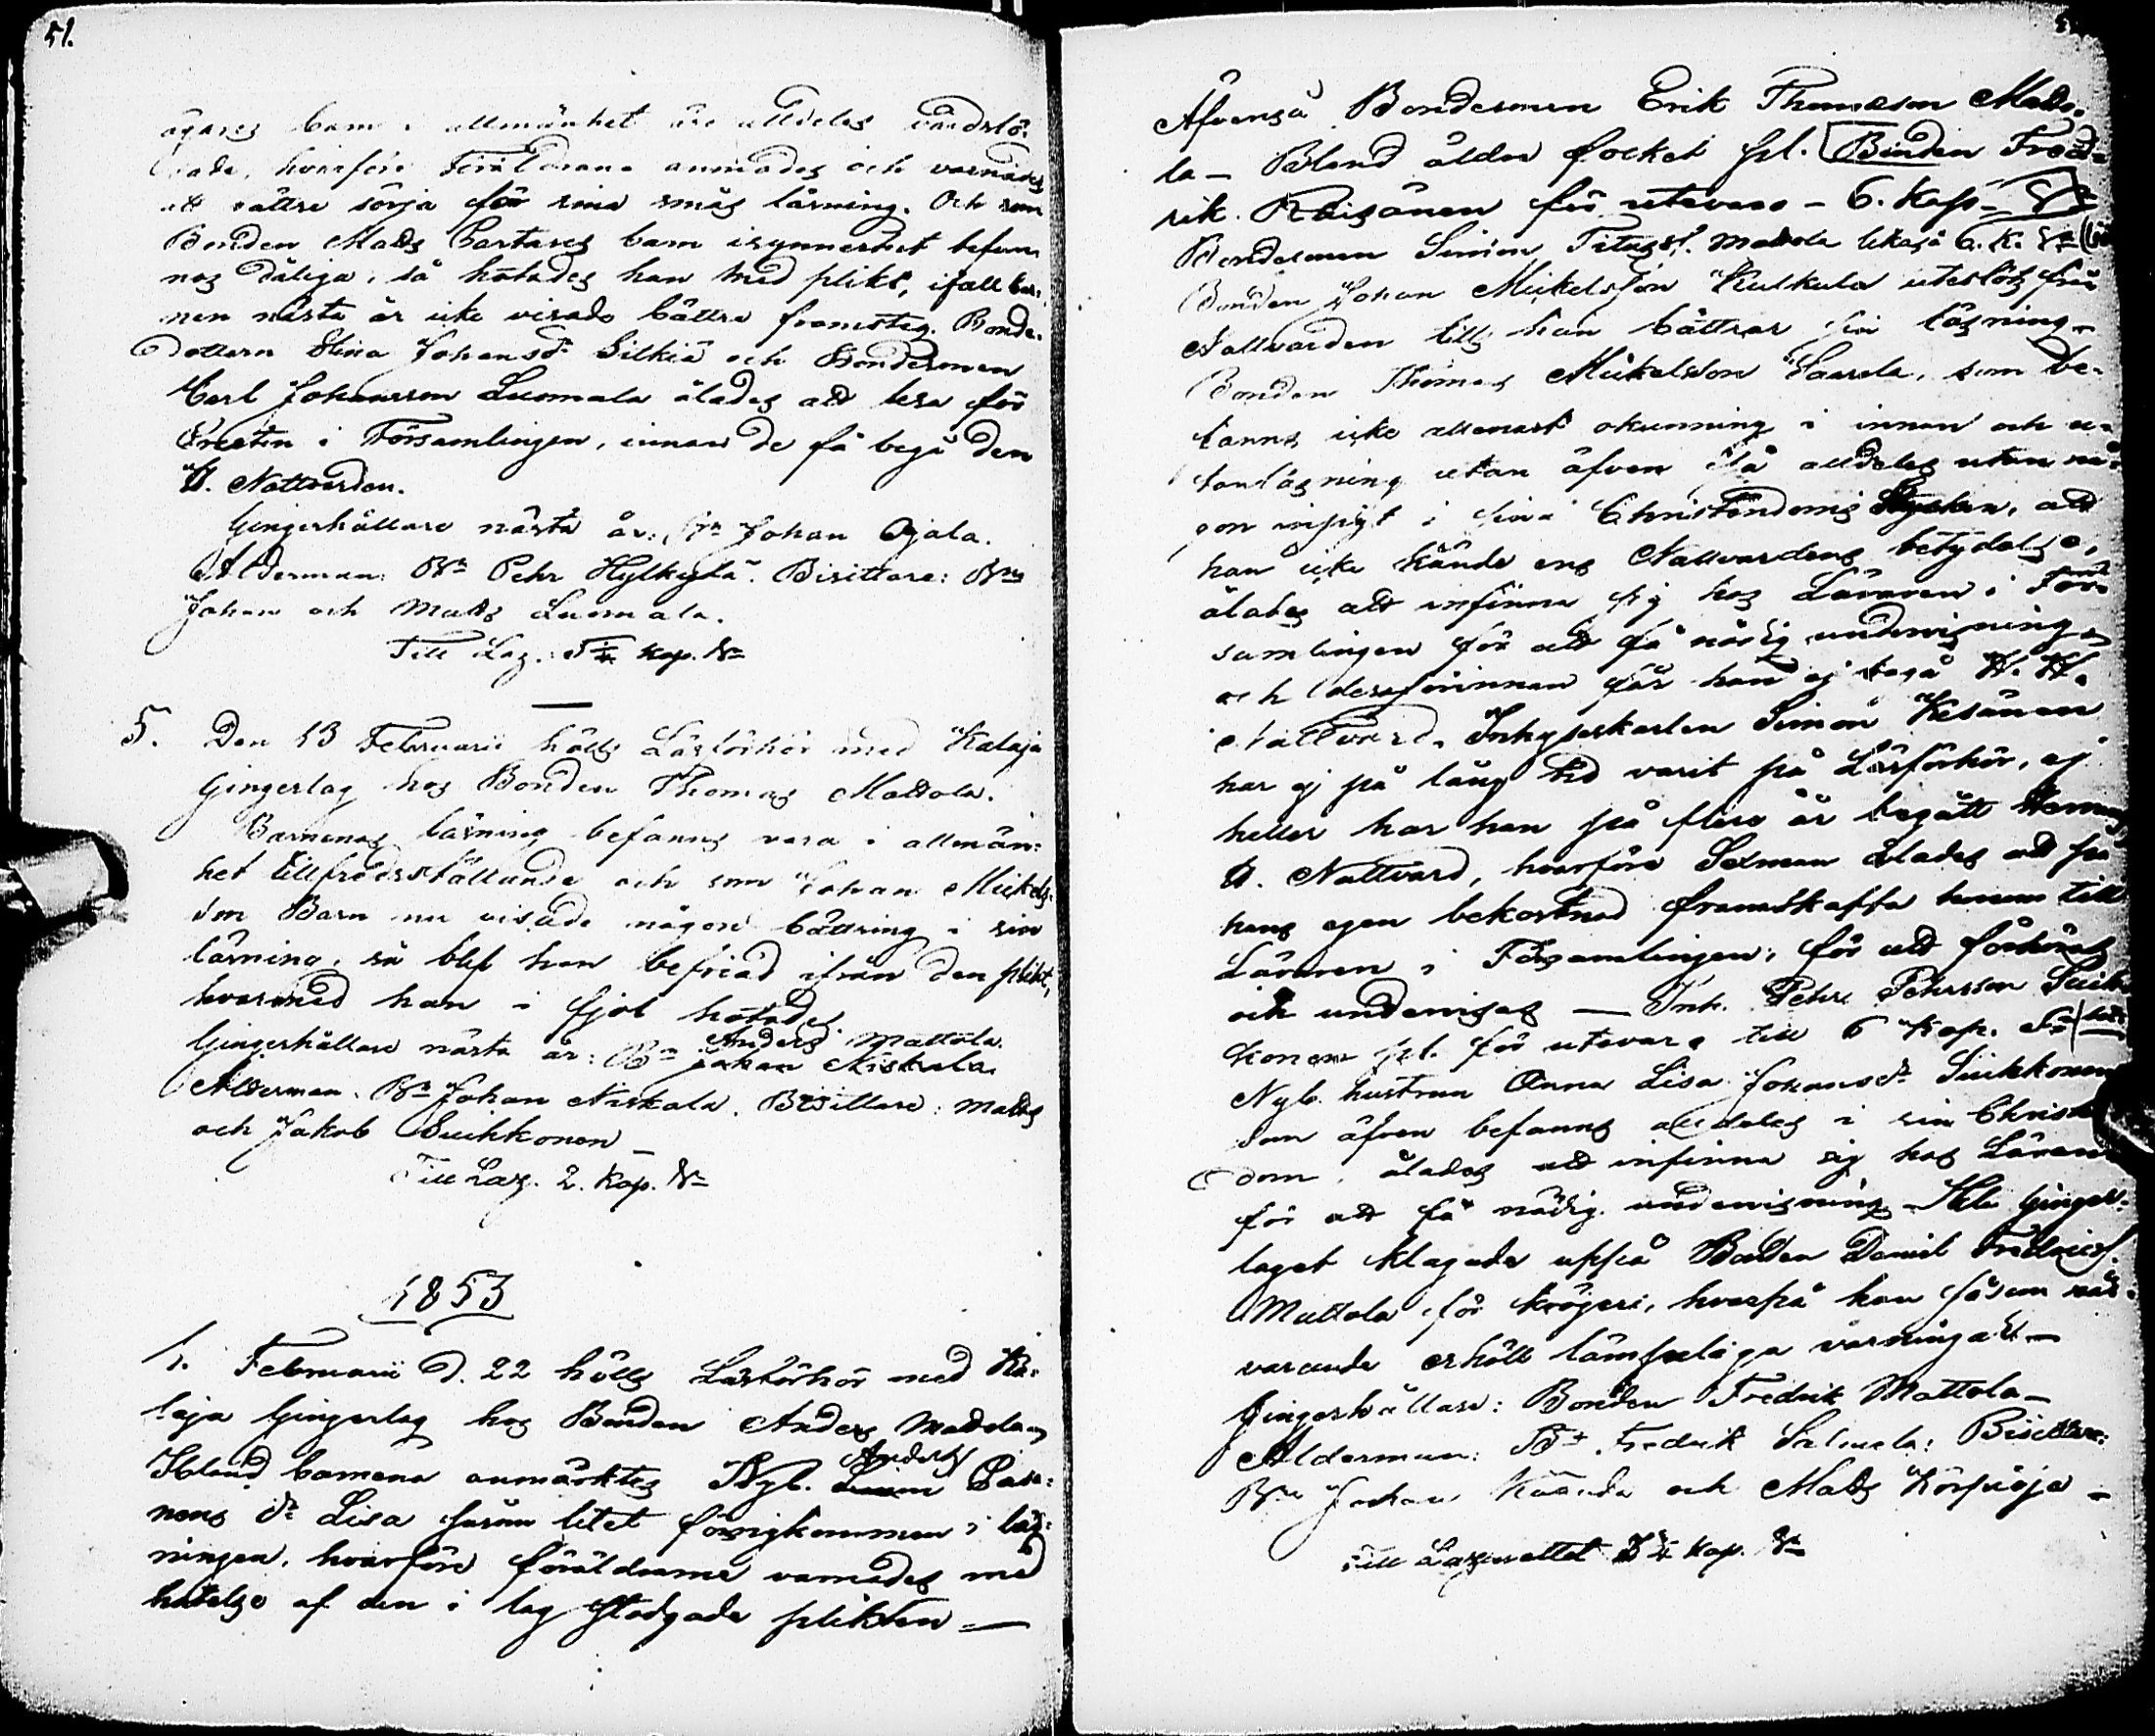 51.
ägares barn i allmänhet äro alldeles vårdslö-
sade, hvarföre Föräldrarna anmodes och varnades
att bättre sörja för sina smås läsning. Och som
Bonden Matts Partases barn isynnerhet befun-
nos dåliga, så hotades han med plikt, ifall bar-
nen nästa år icke visade bättre framsteg. Bonde-
dottern Stina Johansdr Silkiä och Bondesonen
Carl Johansson Luomala ålades att läsa för
Presten i Församlingen, innan de få begå den
H. Nattvarden.
Gingerhållare nästa år: Bn Johan Ojala.
Ålderman: Bn Pehr Hylkylä. Bisittare: Bne
Johan och Matts Luomala.
Till Laz. kop. Sr
5. Den 13 Februarii hölls Läsförhör med Kalaja
Gingerlag hos Bonden Thomas Mattola.
Barnenas läsning befanns vara i allmän-
het tillfredsställande och som Johan Mickels-
son Barn nu visade någon bättring i sin
läsning, så blef han befriad ifrån den plikt,
hvarmed han i fjol hotades.
Anders Mattola.
Gingerhållare nästa år: Bn Johan Niskala.
Ålderman. Bn Johan Niskala. Bisittare: Matts
och Jakob Suihkonen
Till Laz. 2. Kop. Sr
1853
1. Februarii d. 22 hölls Läsförhör med Ka-
laja Gingerlag hos Bonden Anders Mattola
Anderss
Ibland barnena anmärktes Nyb. Pasa-
nens dr Lisa såsom litet försigkommen i läs-
ningen, hvarföre föräldrarne varnades med
hotelse af den i lag stadgade plikten —
Äfvenså Bondesonen Erik Thomasson Matto-
la — Bland äldre folket pl. Bonden Fred-
rik Räisänen för utevaro — 6. Kop. Sr
Bondesonen Simon Mattola likaså 6. K. Sr
Bonden Johan Mickelsson Kulkula uteslöts från
Nattvarden tills han bättrar sin läsning
Bonden Thomas Mickelsson Saarela, som be-
fanns icke allenast okunning i innan och u-
tanläsning utan äfven så alldeles utan nå-
gon insigt i sina Christendoms Stycken, att
han icke kände ens Nattvardens betydelse,
ålades att infinna sig hos Läraren i För-
samlingen för att få nödig undervisning
och dessförinnan får han ej begå H. H.
Nattvard. Inhyseskarlen Simon Kesänen
har ej på lång tid varit på Läsförhör, ej
heller har han på flere år begått Herrans
H. Nattvard, hvarföre Sexman ålades att på
hans egen bekostnad framskaffa honom till
Läraren i Församlingen, för att förhöras
och undervisas — Inh. Pehr Pehrsson Suih-
konen pl. för utevaro till 6 Kop. Sr
Nyb. hustrun Anna Lisa Johansdr Suihkonen
som äfven befanns alldeles i sin Christen-
dom, ålades att infinna sig hos Läraren
för att få nödig undervisning — Hela Ginger-
laget klagade uppå Bonden Daniel Fredricss.
Mattola för krögeri, hvarpå han såsom när-
varande erhöll lämpeliga varningar —
Gingerhållare: Bonden Fredrik Mattola —
Ålderman: Bn Fredrik Salmela: Bisittare:
Bne Johan och Matts
Till Lazarettet kop. Sr